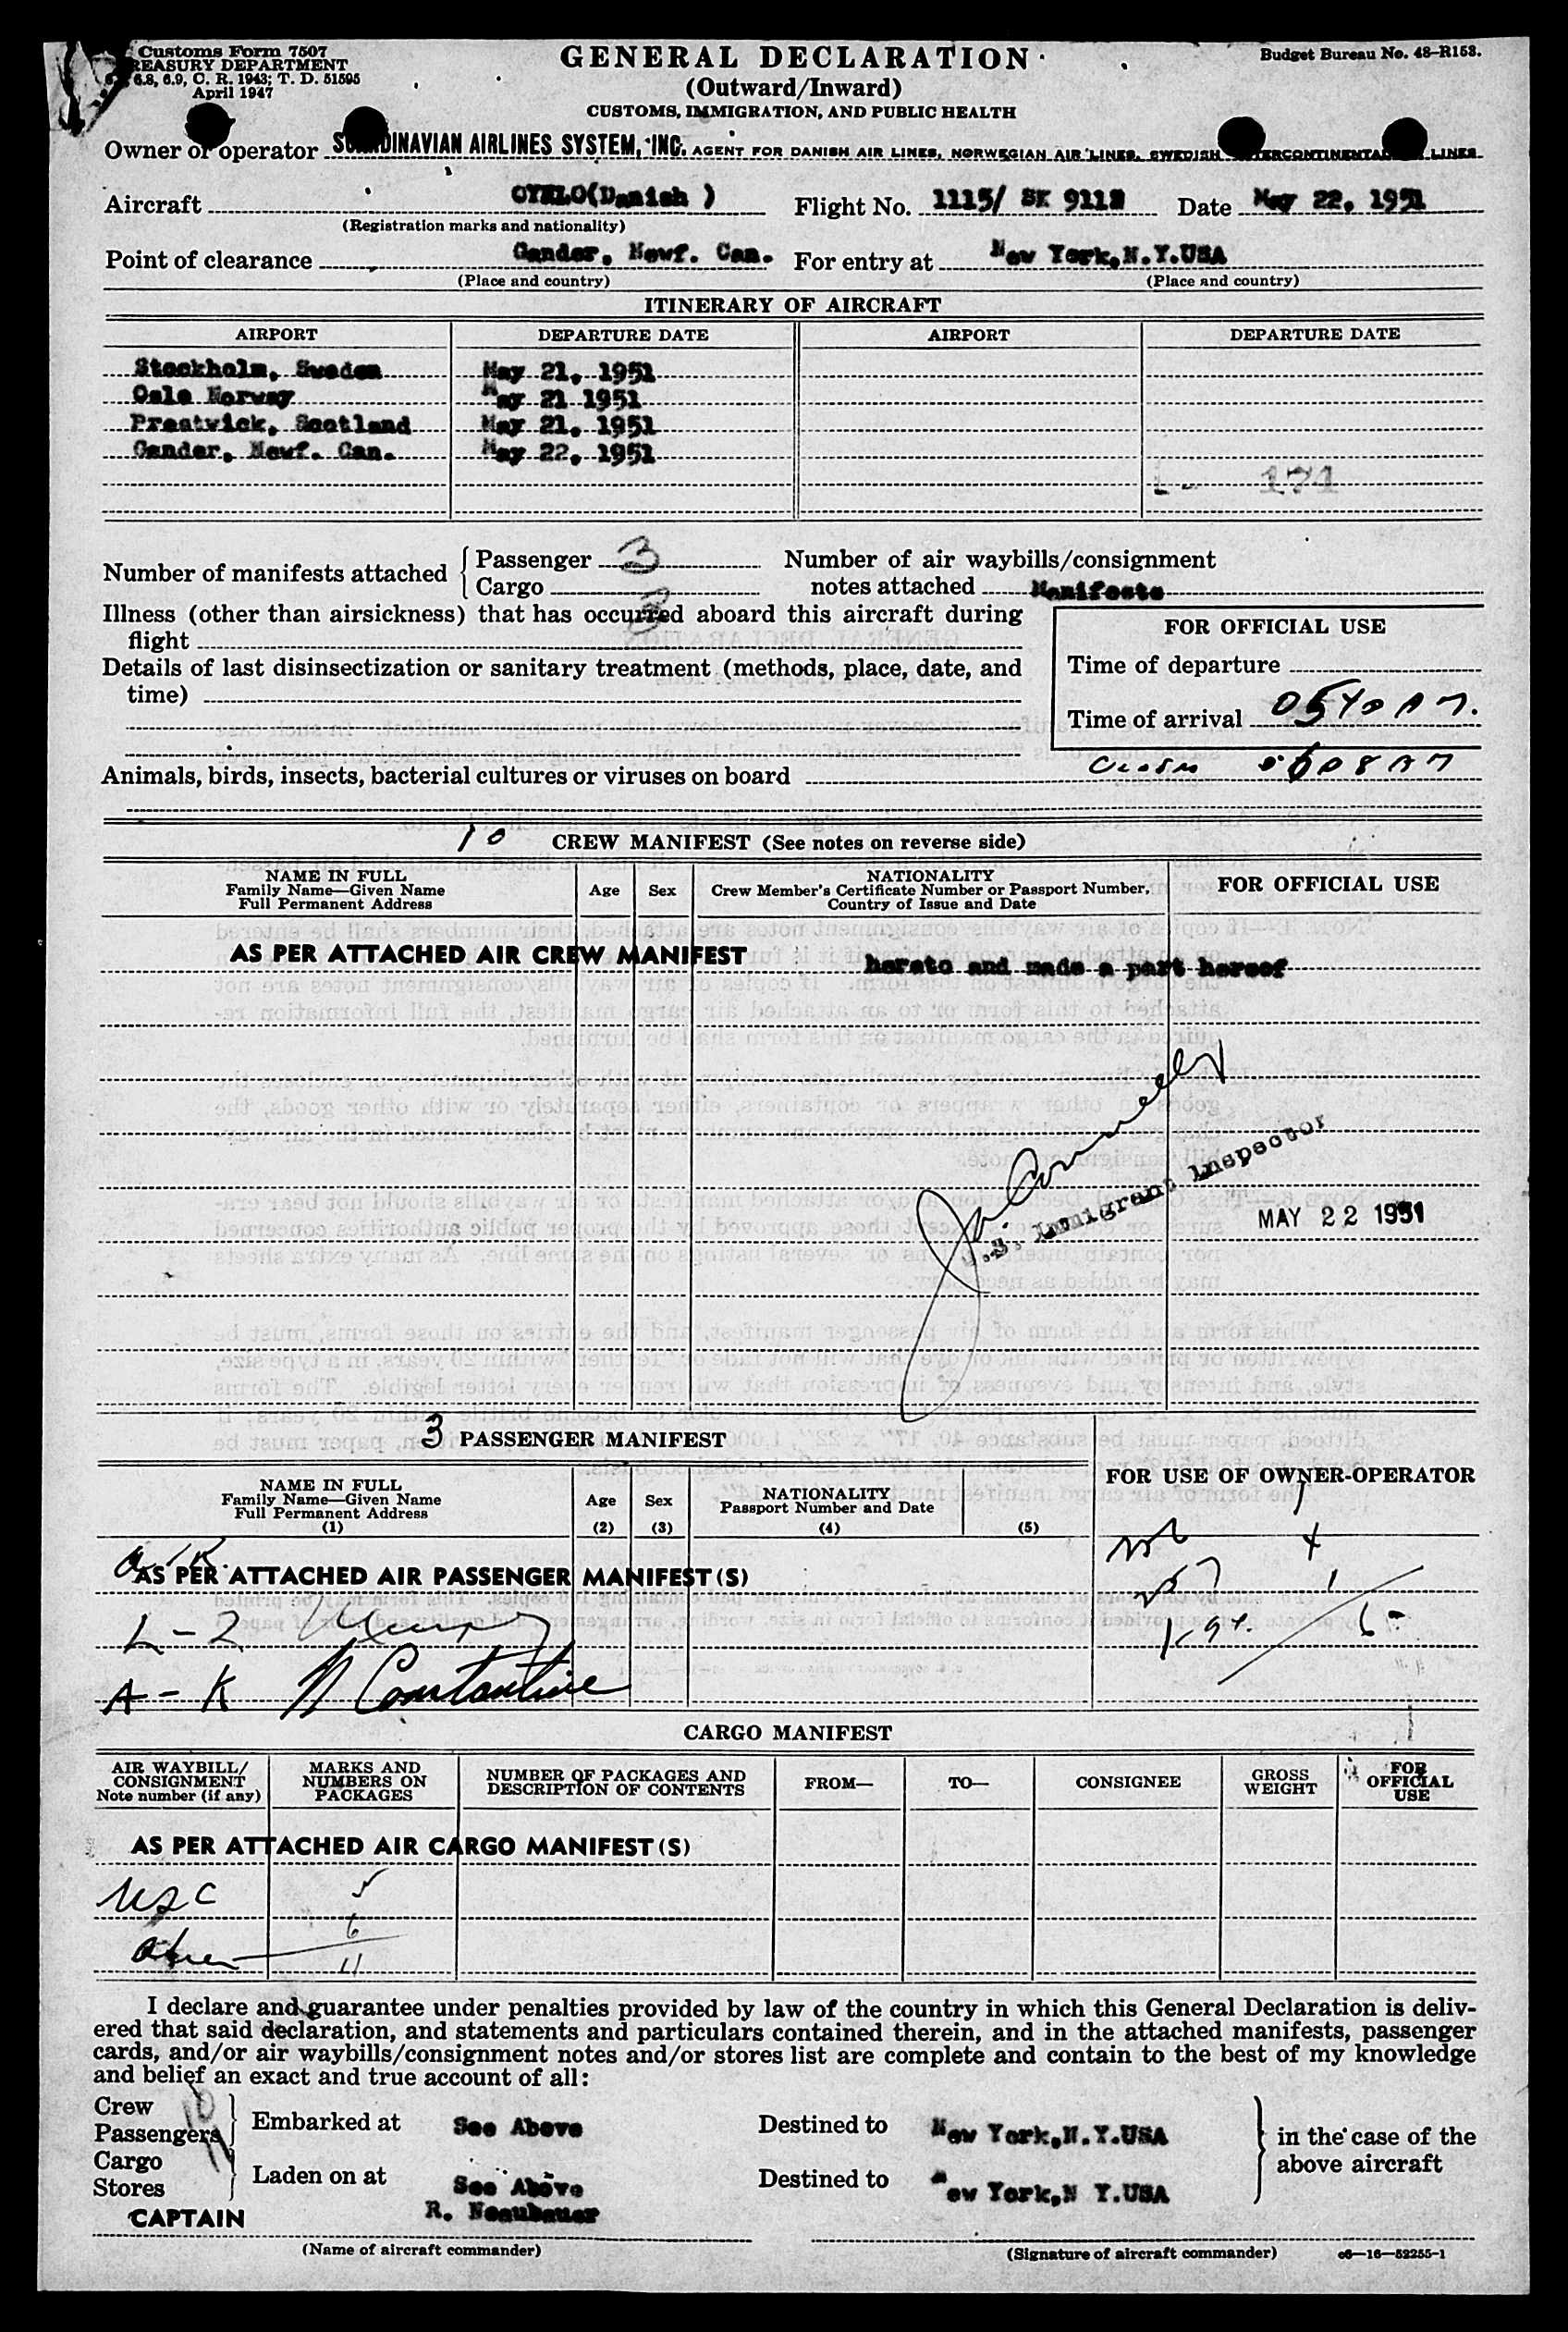 Customs Form 7507
TREASURY DEPARTMENT
6.8, 6.9, C. R. 1943; T. D. 51595
April 1947
GENERAL DECLARATION
(Outward/Inward)
CUSTOMS, IMMIGRATION, AND PUBLIC HEALTH
Budget Bureau No. 48–R158.
Owner or operator SCANDINAVIAN AIRLINES SYSTEM, INC. AGENT FOR DANISH AIR LINES, NORWEGIAN AIR LINES, SWEDISH INTERCONTINENTAL LINES
Aircraft (Danish ) Flight No. 1115/ SK 911 Date May 22, 1951
(Registration marks and nationality)
Point of clearance Gander, Newf. Can. For entry at New York,N.Y.USA
(Place and country) (Place and country)
ITINERARY OF AIRCRAFT
AIRPORT DEPARTURE DATE AIRPORT DEPARTURE DATE
Stockholm, Sweden May 21, 1951
Oslo Norway May 21 1951
Prestwick, Scotland May 21, 1951
Gander, Newf. Can. May 22, 1951
174
Number of manifests attached Passenger 3 Number of air waybills/consignment
Cargo 3 notes attached Manifests
Illness (other than airsickness) that has occurred aboard this aircraft during
flight
FOR OFFICIAL USE
Details of last disinsectization or sanitary treatment (methods, place, date, and
time)
Time of departure
Time of arrival 0540 AM.
Animals, birds, insects, bacterial cultures or viruses on board 0608 AM
10 CREW MANIFEST (See notes on reverse side)
NAME IN FULL
Family Name—Given Name
Full Permanent Address
Age Sex
NATIONALITY
Crew Member's Certificate Number or Passport Number,
Country of Issue and Date
FOR OFFICIAL USE
AS PER ATTACHED AIR CREW MANIFEST hereto and made a part hereof
.S. Immigrant Inspector
MAY 22 1951
3 PASSENGER MANIFEST
FOR USE OF OWNER-OPERATOR
NAME IN FULL
Family Name—Given Name
Full Permanent Address
(1)
Age
(2)
Sex
(3)
NATIONALITY
Passport Number and Date
(4) (5)
AS PER ATTACHED AIR PASSENGER MANIFEST(S)
L - Z
A - K N Constantine
CARGO MANIFEST
AIR WAYBILL/
CONSIGNMENT
Note number (if any)
MARKS AND
NUMBERS ON
PACKAGES
NUMBER OF PACKAGES AND
DESCRIPTION OF CONTENTS
FROM— TO— CONSIGNEE
GROSS
WEIGHT
FOR
OFFICIAL
USE
AS PER ATTACHED AIR CARGO MANIFEST(S)
USC 5
6
11
I declare and guarantee under penalties provided by law of the country in which this General Declaration is deliv-
ered that said declaration, and statements and particulars contained therein, and in the attached manifests, passenger
cards, and/or air waybills/consignment notes and/or stores list are complete and contain to the best of my knowledge
and belief an exact and true account of all:
Crew 10
Passengers 11
Embarked at See Above Destined to New York,N.Y.USA
Cargo
Stores
Laden on at See Above Destined to New York,N Y.USA
in the case of the
above aircraft
CAPTAIN R. Neaubauer
(Name of aircraft commander) (Signature of aircraft commander) c6—16—52255-1